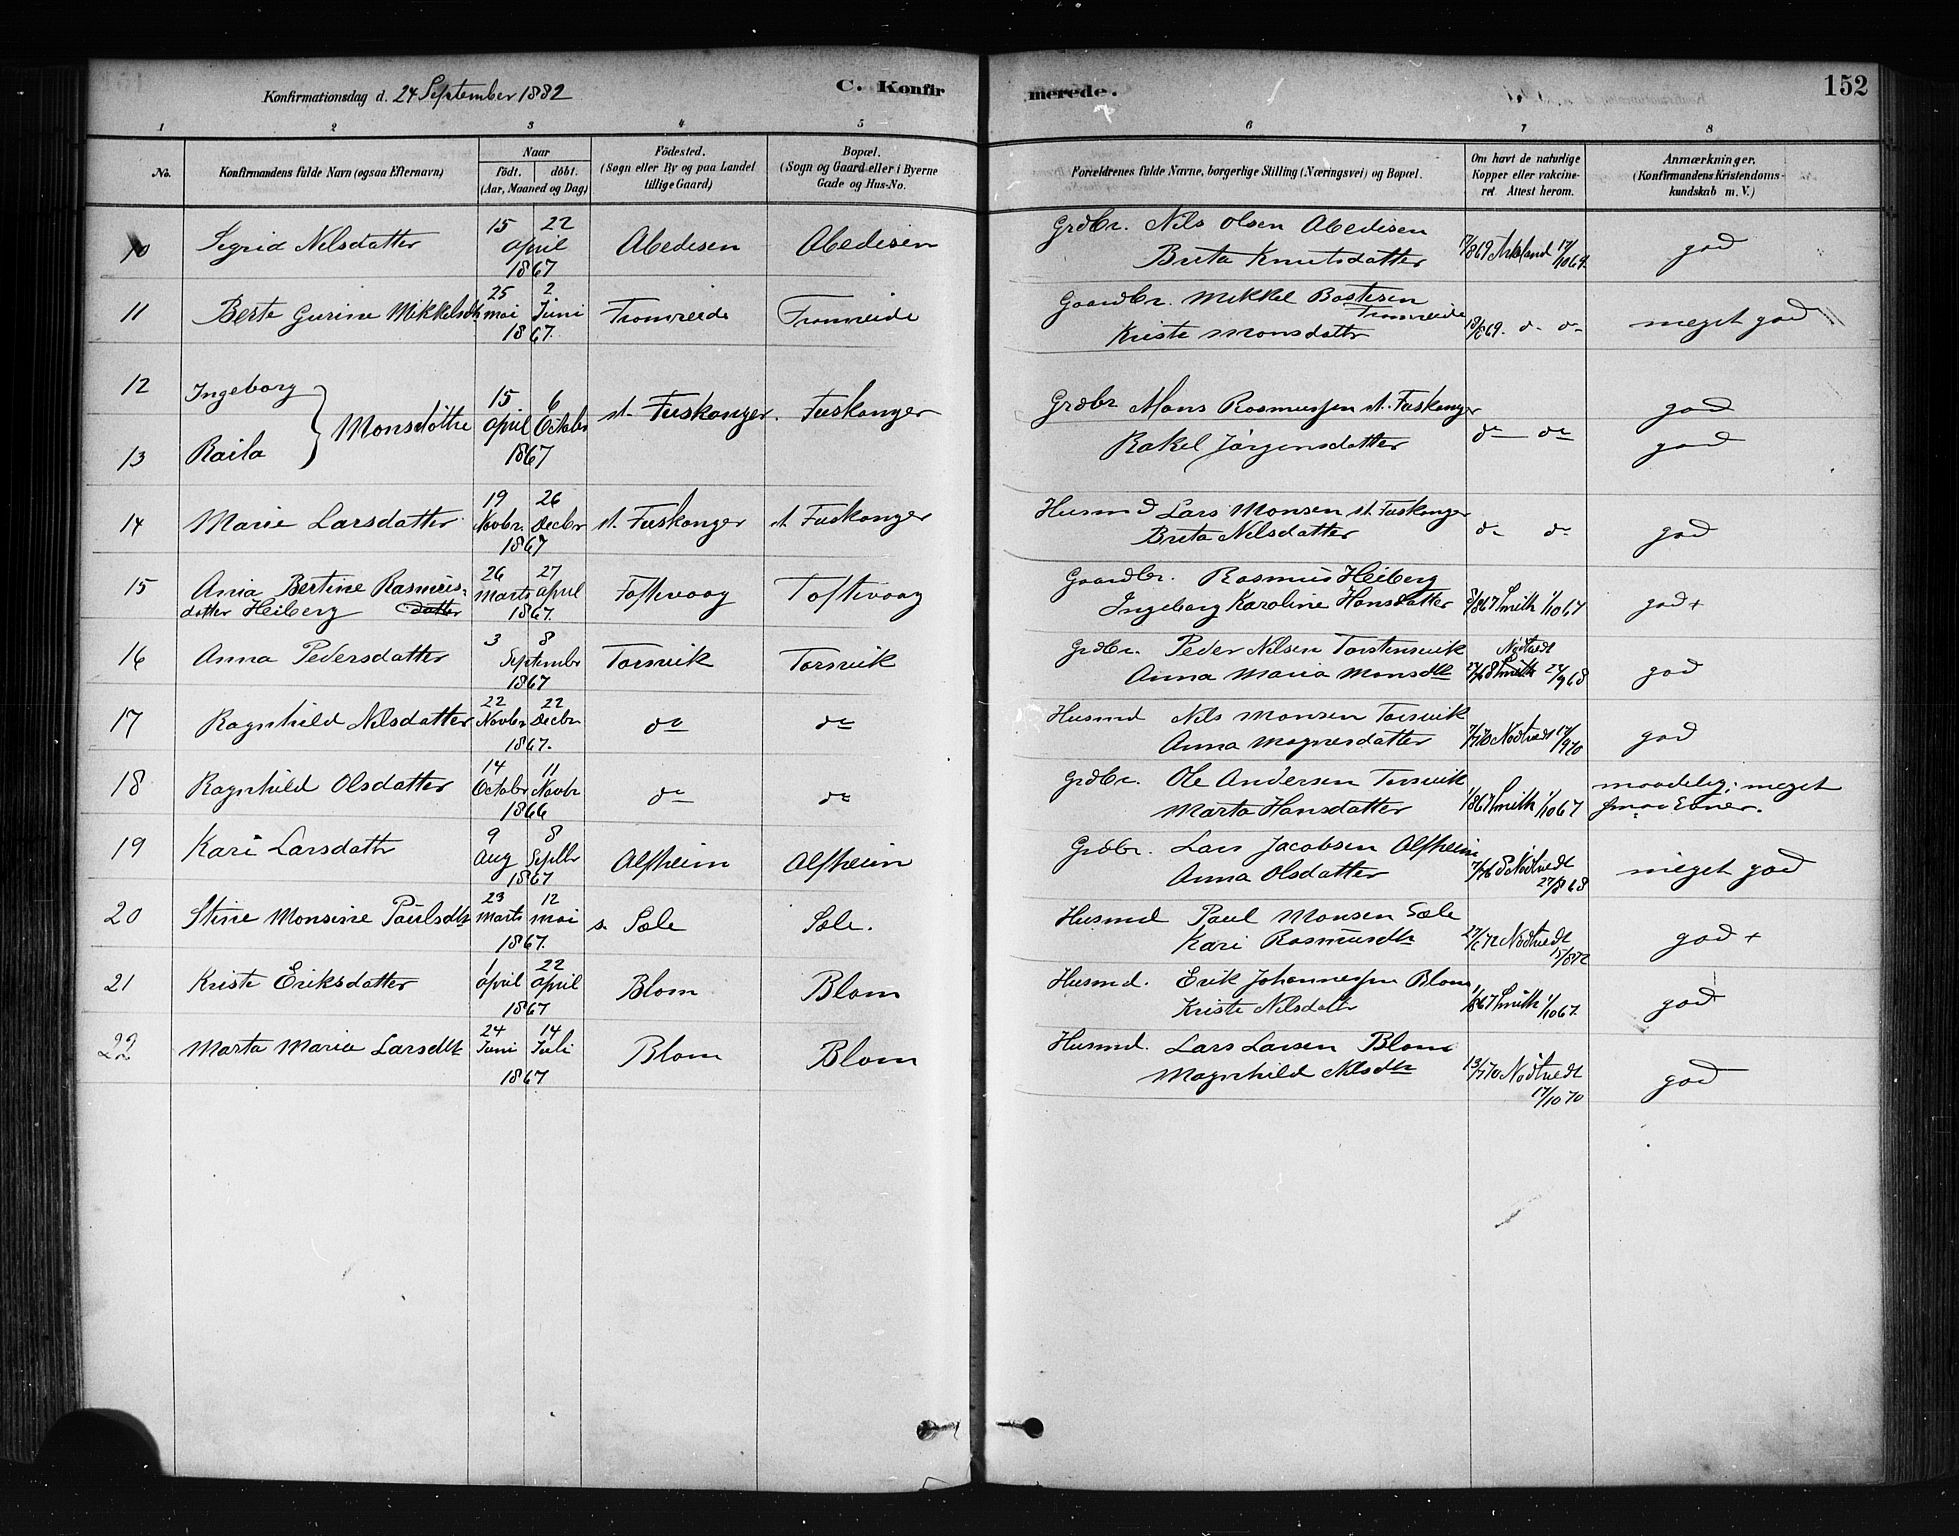 Konfirmationsdag d. 24 September 1882
C. Konfirmerede.
152
1 2 3 4 5 6 7 8
No.
Konfirmandens fulde Navn (ogsaa Efternavn)
Naar
født. døbt.
(Aar, Maaned og Dag)
Fødested.
(Sogn eller By og paa Landet
tillige Gaard)
Bopæl.
(Sogn og Gaard eller i Byerne
Gade og Hus-No.
Forældrenes fulde Navne, borgerlige Stilling (Næringsvei) og Bopæl.
Om havt de naturlige
Kopper eller vakcine-
ret. Attest herom.
Anmærkninger.
(Konfirmandens Kristendoms-
kundskab m. V.)
10 Sigrid Nilsdatter 15 22 april 1867 Abedisen Abedisen Grdbr. Nils Olsen Abedisen
Brita Knutsdatter god
11 Berte Gurine Mikkelsdtr 25 mai 2 Juni 1867. Fromreide Fromreide Gaardbr. Mikkel Bastesen
Fromreide
Kriste Monsdatter 18/869. do do meget god
12 Ingeborg
13 Raila
Monsdøttre 15 april 6 Octobr 1867 st. Fuskanger. Fuskanger Grdbr Mons Rasmussen st. Fuskanger
Rakel Jørgensdatter do do god
god
14 Marie Larsdatter 19 Novbr. 26 Decbr 1867 st. Fuskanger st. Fuskanger Husmd Lars Monsen st. Fuskanger
Brita Nilsdatter do do god
15 Ania Bertine Rasmus-
datter Heiberg datter 26 Marts 27 april 1867. Toftevaag Toftevaag Gaardbr. Rasmus Heiberg
Ingeborg Karoline Hansdatter 8/867 Smith 1/1067 god +
16 Anna Pedersdatter 3 8 Septembr 1867 Torsvik Torsvik Grdbr. Peder Nilsen Torstensvik
Anna Maria Monsdtr Nødtvedt Smith 27/968 god
17 Ragnhild Nilsdatter 22 Novbr 22 Decbr 1867. do do Husmd Nils Monsen Torsvik
Anna Magnesdatter 7/770 Nødtvedt 17/970 god
18 Ragnhild Olsdatter 14 Octobr 11 Novbr 1866 do do Grdbr. Ole Andersen Torsvik
Marta Hansdatter 1/867 Smith 1/1067 maadelig; meget
smaa Evner.
19 Kari Larsdatter 9 Aug 8 Septbr 1867 Alfheim Alfheim Grdbr. Lars Jacobsen Alfheim
Anna Olsdatter Nødtvedt
27/868 meget god
20 Stine Monsine Paulsdtr 23 Marts 12 mai 1867. s. Sæle Sæle. Husmd Paul Monsen Sæle
Kari Rasmusdtr Nødtvedt
15/872 god +
21 Kriste Eriksdatter 1 april 22 april 1867 Blom Blom Husmd. Erik Johannessen Blom,
Kriste Nilsdatr 1/867 Smith 1/1067. god
22 Marta Maria Larsdtr 24 Juni 14 Juli 1867 Blom Blom Husmd. Lars Larsen Blom
Magnhild Nilsdtr 13/770 Nødtvedt
17/1070 god